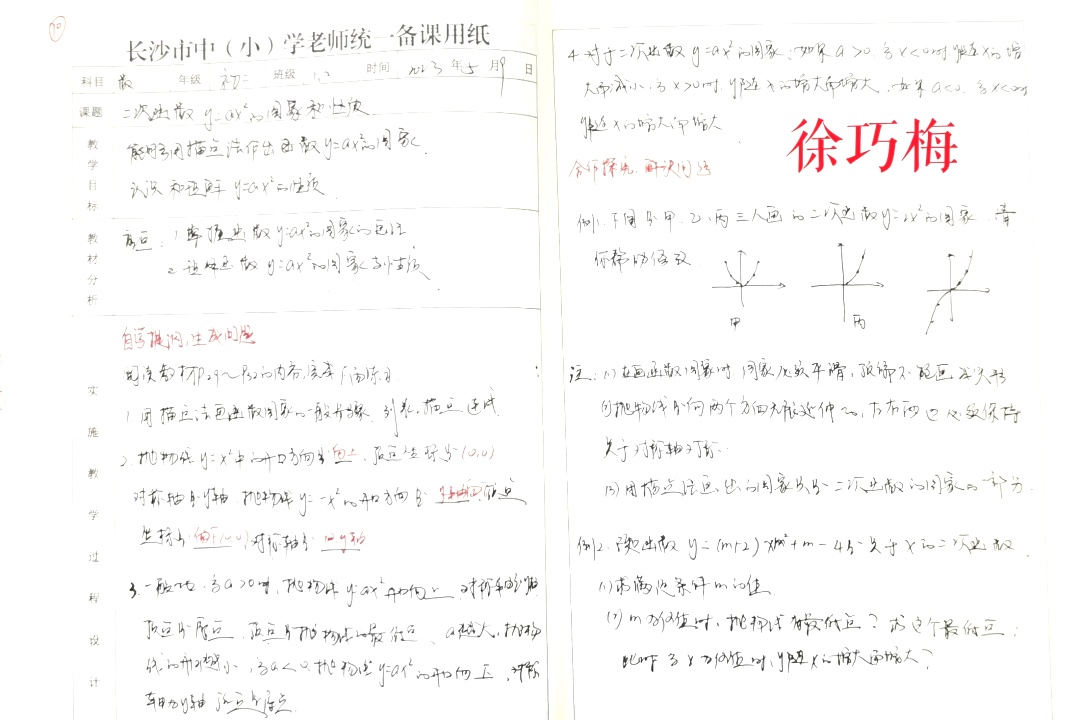 长沙市中（小）学老师统一备课用纸
科目 数 年级 初二 班级 时间 2023 年 5 月 9 日
课题 二次函数 y=ax²的图象和性质
教学目标
能够用描点法作出函数 y=ax²的图象
认识和理解 y=ax²的性质
教材分析
重点：1.掌握函数 y=ax²的图象的画法
2.理解函数 y=ax²的图象与性质
实施教学过程设计
自学提纲，生成问题
阅读教材P29~P32的内容，完成下面练习
1.用描点法画函数图象的一般步骤 列表，描点，连线
2.抛物线 y=x²中的开口方向是 向上，顶点坐标是 (0,0)
对称轴是y轴 抛物线 y=-x²的开口方向是 顶点
坐标是 (0,0) 对称轴是 y轴
3.一般地，当a>0时，抛物线 y=ax²开口向上，对称轴是y轴
顶点是原点，顶点是抛物线的最低点，a越大，抛物
线的开口越小，当a<0，抛物线 y=ax²的开口向下，对称
轴为y轴 顶点是原点
4.对于二次函数 y=ax²的图象，如果 a>0，当x<0时y随x的增
大而减小，当x>0时，y随x的增大而增大，如果a<0，当x<0时
y随x的增大而增大
徐巧梅
合作探究，解决问题
例1.下图是甲、乙、丙三人画的二次函数y=2x²的图象，请
你帮助修改
甲 丙
注：(1)在画函数图象时 图象必须平滑，顶端不能画成尖形
的抛物线是向两个方向无限延伸的，左右两边必须保持
关于对称轴对称.
(2)用描点法画出的图象只是二次函数的图象的一部分
例2.已知函数 y=(m+2)x^m²+m-4是关于x的二次函数
(1)求满足条件m的值
(2)m为何值时，抛物线有最低点？求这个最低点；
此时当x为何值时，y随x的增大而增大？